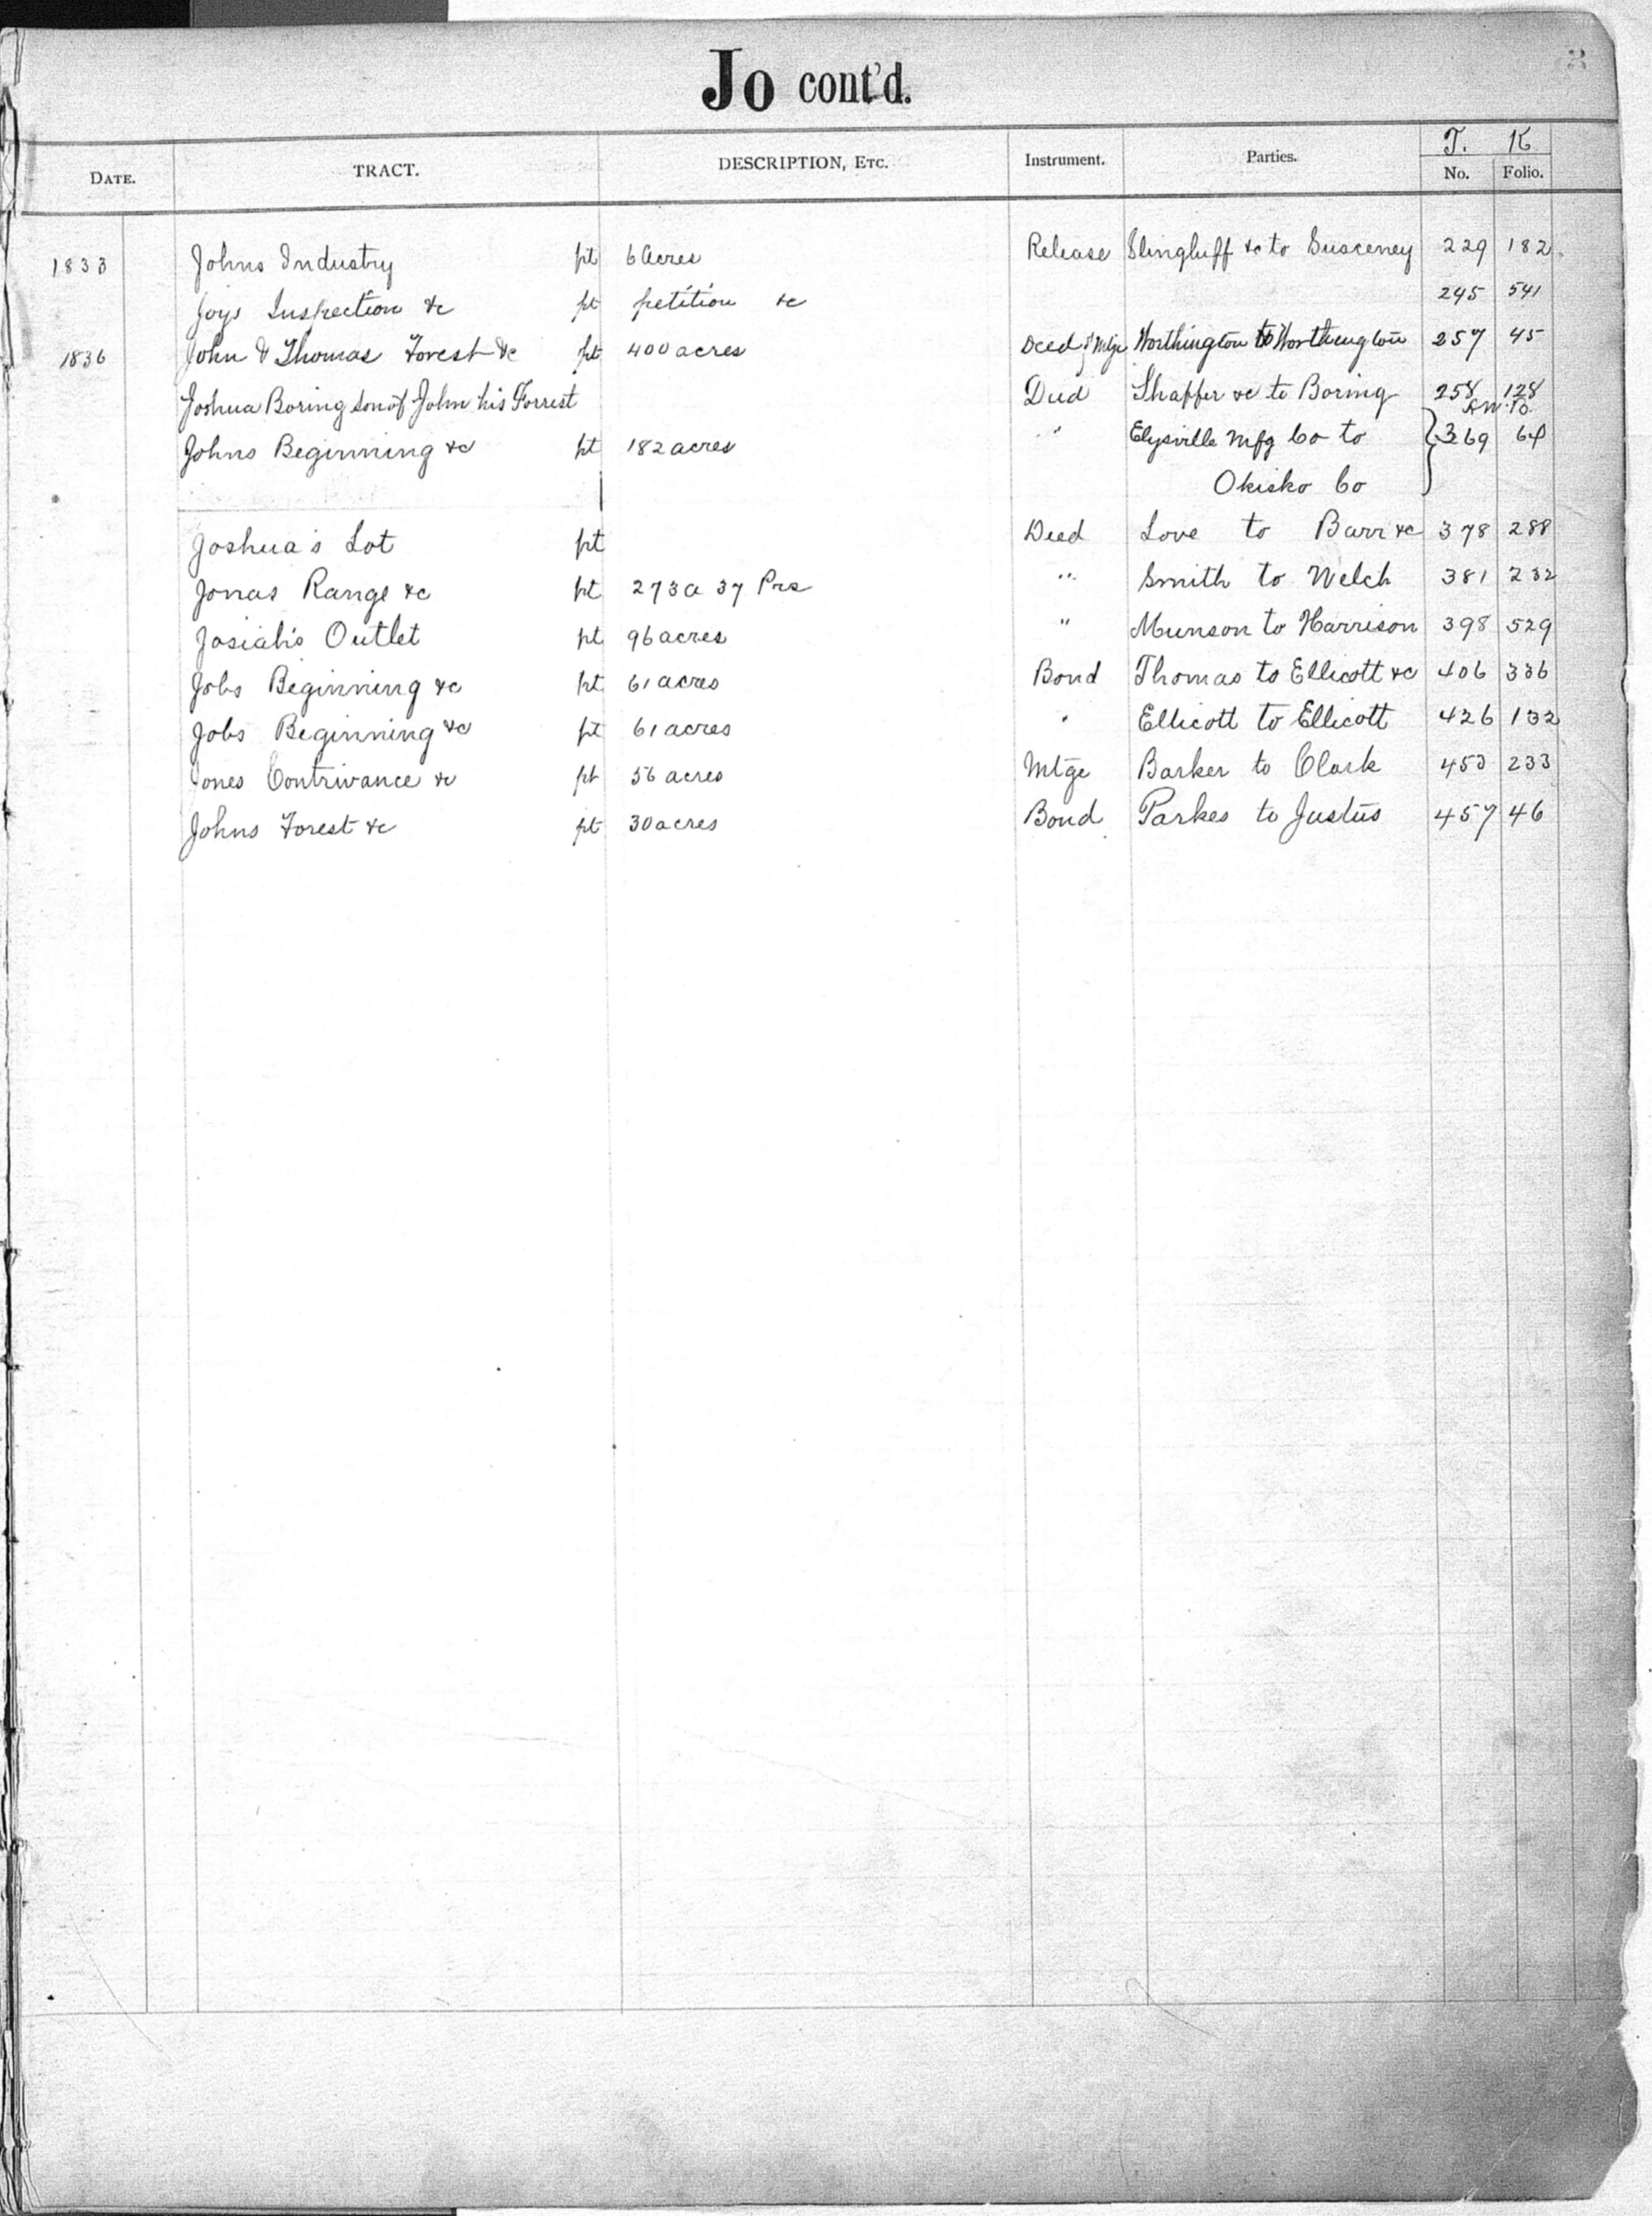 Jo cont'd.
T. K
DATE. TRACT. DESCRIPTION, ETC. Instrument. Parties. No. Folio.
1833 Johns Industry pt 6 Acres Release Slingluff &c to 229 182
Joys Inspection &c pt petition &c 245 541
1836 John & Thomas Forest &c pt 400 acres Deed & Mtge Worthington to Worthington 257 45
Joshua Boring son of John his Forrest Deed Shaffer &c to Boring 258 128
Johns Beginning &c pt 182 acres " Elysville Mfg Co to } 369 64
Okisko Co
Joshua's Lot pt Deed Love to Barr &c 378 288
Jonas Range &c pt 273 a 37 Prs " Smith to Welch 381 232
Josiah's Outlet pt 96 acres " Munson to Harrison 398 529
Jobs Beginning &c pt 61 acres Bond Thomas to Ellicott &c 406 336
Jobs Beginning &c pt 61 acres " Ellicott to Ellicott 426 132
Jones Contrivance &c pt 56 acres Mtge Barker to Clark 453 233
Johns Forest &c pt 30 acres Bond Parkes to Justus 457 46